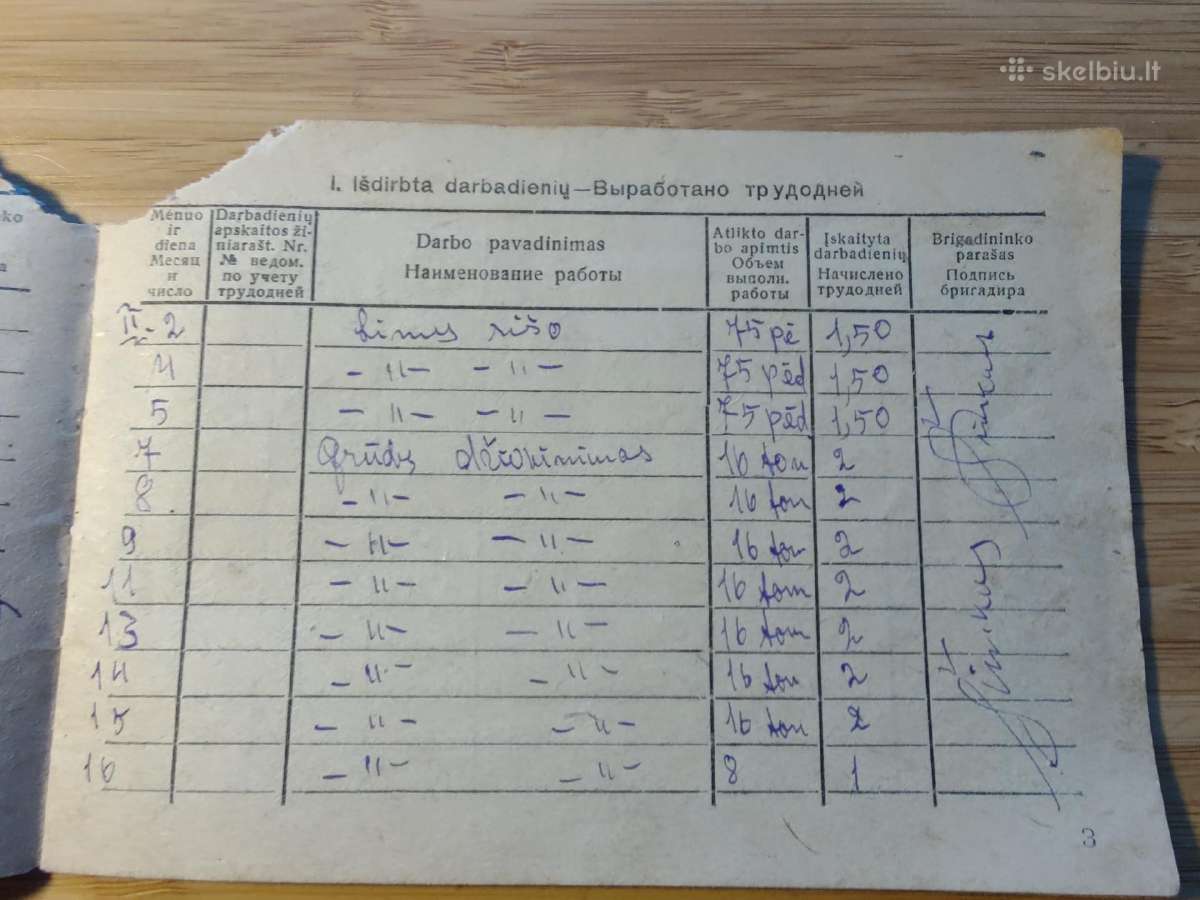 skelbiu.lt
ko
a
I. Išdirbta darbadienių—Выработано трудодней
Mėnuo ir diena
Месяц и число
Darbadienių apskaitos žiniarašt. Nr.
№ ведом. по учету трудодней
Darbo pavadinimas
Наименование работы
Atlikto darbo apimtis
Объем выполн. работы
Įskaityta darbadienių
Начислено трудодней
Brigadininko parašas
Подпись бригадира
II-2 Linus rišo 75 pė 1,50
4 -〃- -〃- 75 pėd 1,50
5 -〃- -〃- 75 pėd 1,50
7 Grūdų džiovinimas 16 ton 2
8 -〃- -〃- 16 ton 2
9 -〃- -〃- 16 ton 2
11 -〃- -〃- 16 ton 2
13 -〃- -〃- 16 ton 2
14 -〃- -〃- 16 ton 2
15 -〃- -〃- 16 ton 2
16 -〃- -〃- 8 1
3